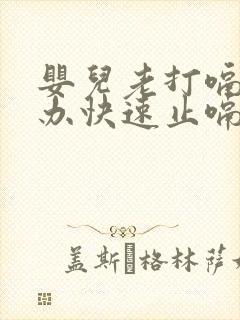 嬰兒老打嗝
办快速止嗝
盖斯 格林萨